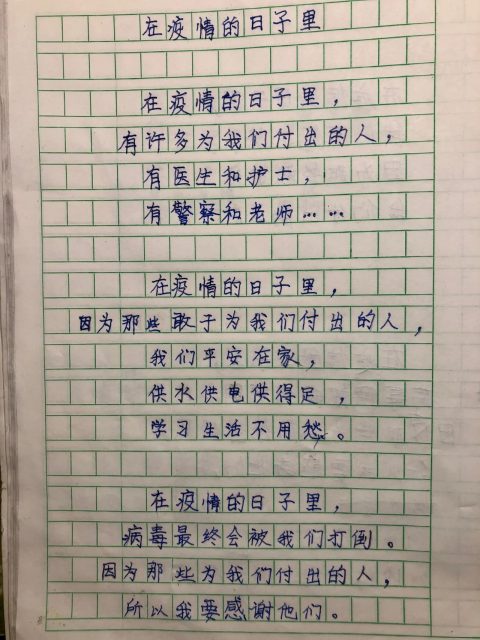 在疫情的日子里
在疫情的日子里，
有许多为我们付出的人，
有医生和护士，
有警察和老师……
在疫情的日子里，
因为那些敢于为我们付出的人，
我们平安在家，
供水供电供得足，
学习生活不用愁。
在疫情的日子里，
病毒最终会被我们打倒。
因为那些为我们付出的人，
所以我要感谢他们。